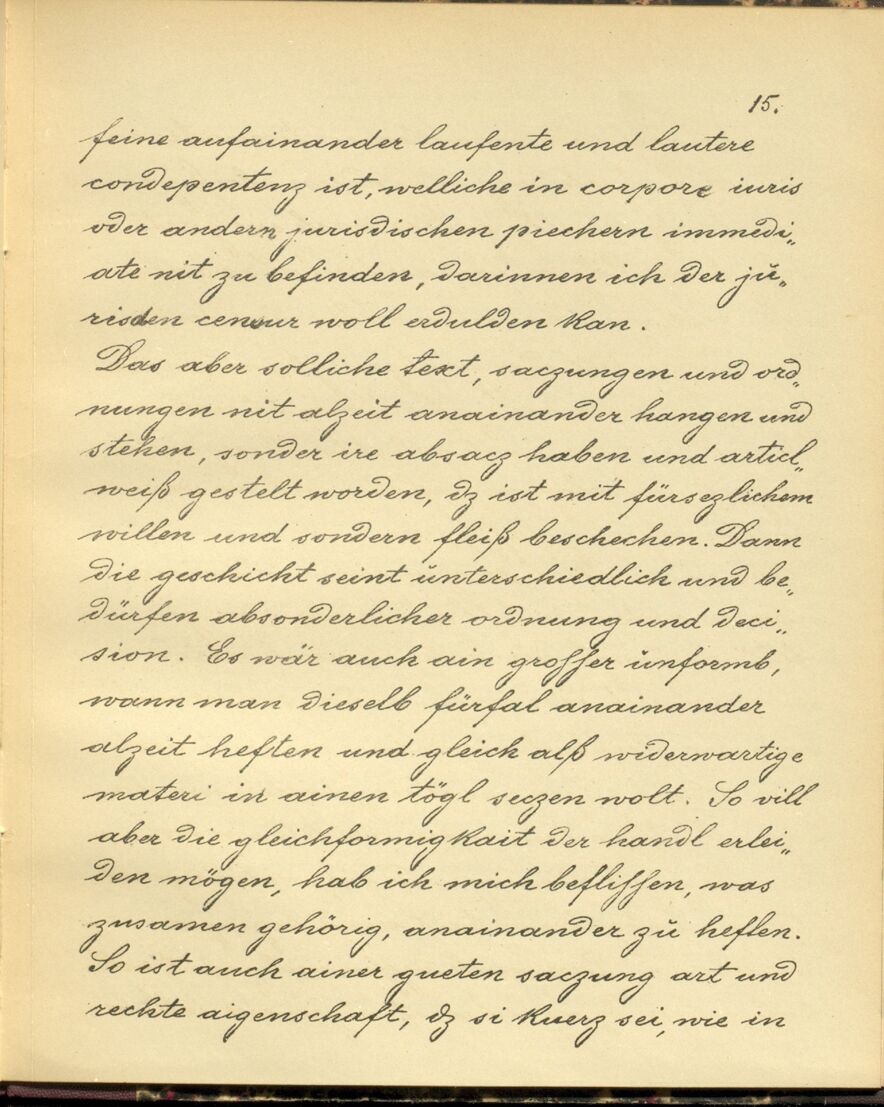 15.
feine aufainander laufente und lautere
condepentenz ist, welliche in corpore iuris
oder andern jurisdischen piechern immedi„
ate nit zu befinden, darinnen ich der jŭ„
risden censur woll erdulden kan.
Das aber solliche text, saczungen und ord„
nungen nit alzeit anainander hangen und
stehen, sonder ire absacz haben und articl„
weiß gestelt worden, dz ist mit fürsezlichem
willen und sondern fleiß beschechen. Dann
die geschicht seint ŭnterschiedlich und be„
dürfen absonderlicher ordnung und deci„
sion. Es wär auch ain grosser ŭnformb,
wann man dieselb fürfal anainander
alzeit heften und gleich alß widerwartige
materi in ainen tögl seczen wolt. So vill
aber die gleichformigkait der handl erlei„
den mögen, hab ich mich beflissen, was
zusamen gehörig, anainander zŭ heften.
So ist auch ainer gueten saczung art und
rechte aigenschaft, dz si kuerz sei, wie in